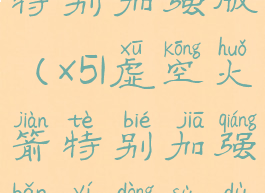 特别加强版
xū kōng huǒ
(x5|虚空火
jiàn tè bié jiā qiáng
箭特别加强
bǎn yí dòng sù dù